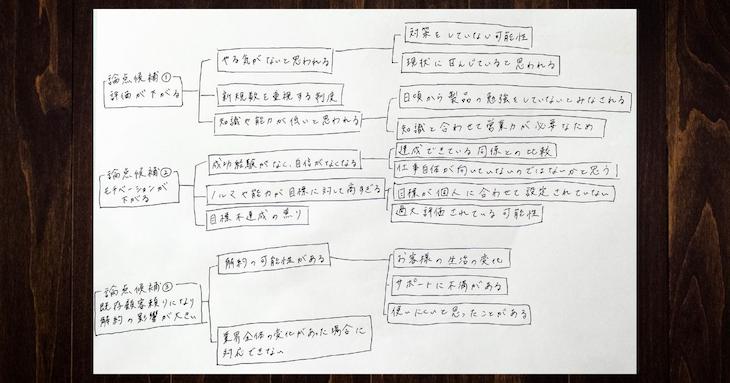 論点候補①
評価が下がる
やる気がないと思われる
対策をしていない可能性
現状に甘んじていると思われる
新規数を重視する制度
知識や能力が低いと思われる
日頃から製品の勉強をしていないとみなされる
知識と合わせて営業力が必要なため
論点候補②
モチベーションが
下がる
成功経験がなく、自信がなくなる
達成できている同僚との比較
仕事自体が向いていないのではないかと思う
ノルマや能力が目標に対して高すぎる
目標が個人に合わせて設定されていない
過大評価されている可能性
目標不達成の焦り
論点候補③
既存顧客頼りになり
解約の影響が大きい
解約の可能性がある
お客様の生活の変化
サポートに不満がある
使いにくいと思ったことがある
業界全体の変化があった場合に
対応できない